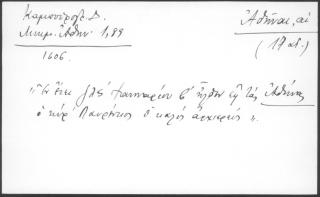 Καμπούρογλ. Δ.
Μνημ. Ἀθην. 1,89
1606.
Ἀθῆναι, αἱ
(17 αἰ.)
"Ἐν ἔτει ͵αχϛ ἰαννουαρίου ἦλθεν εἰς τὰς Ἀθήνας
ὁ κύρ Λαυρέντιος ὁ καλός ἀρχιερεύς".